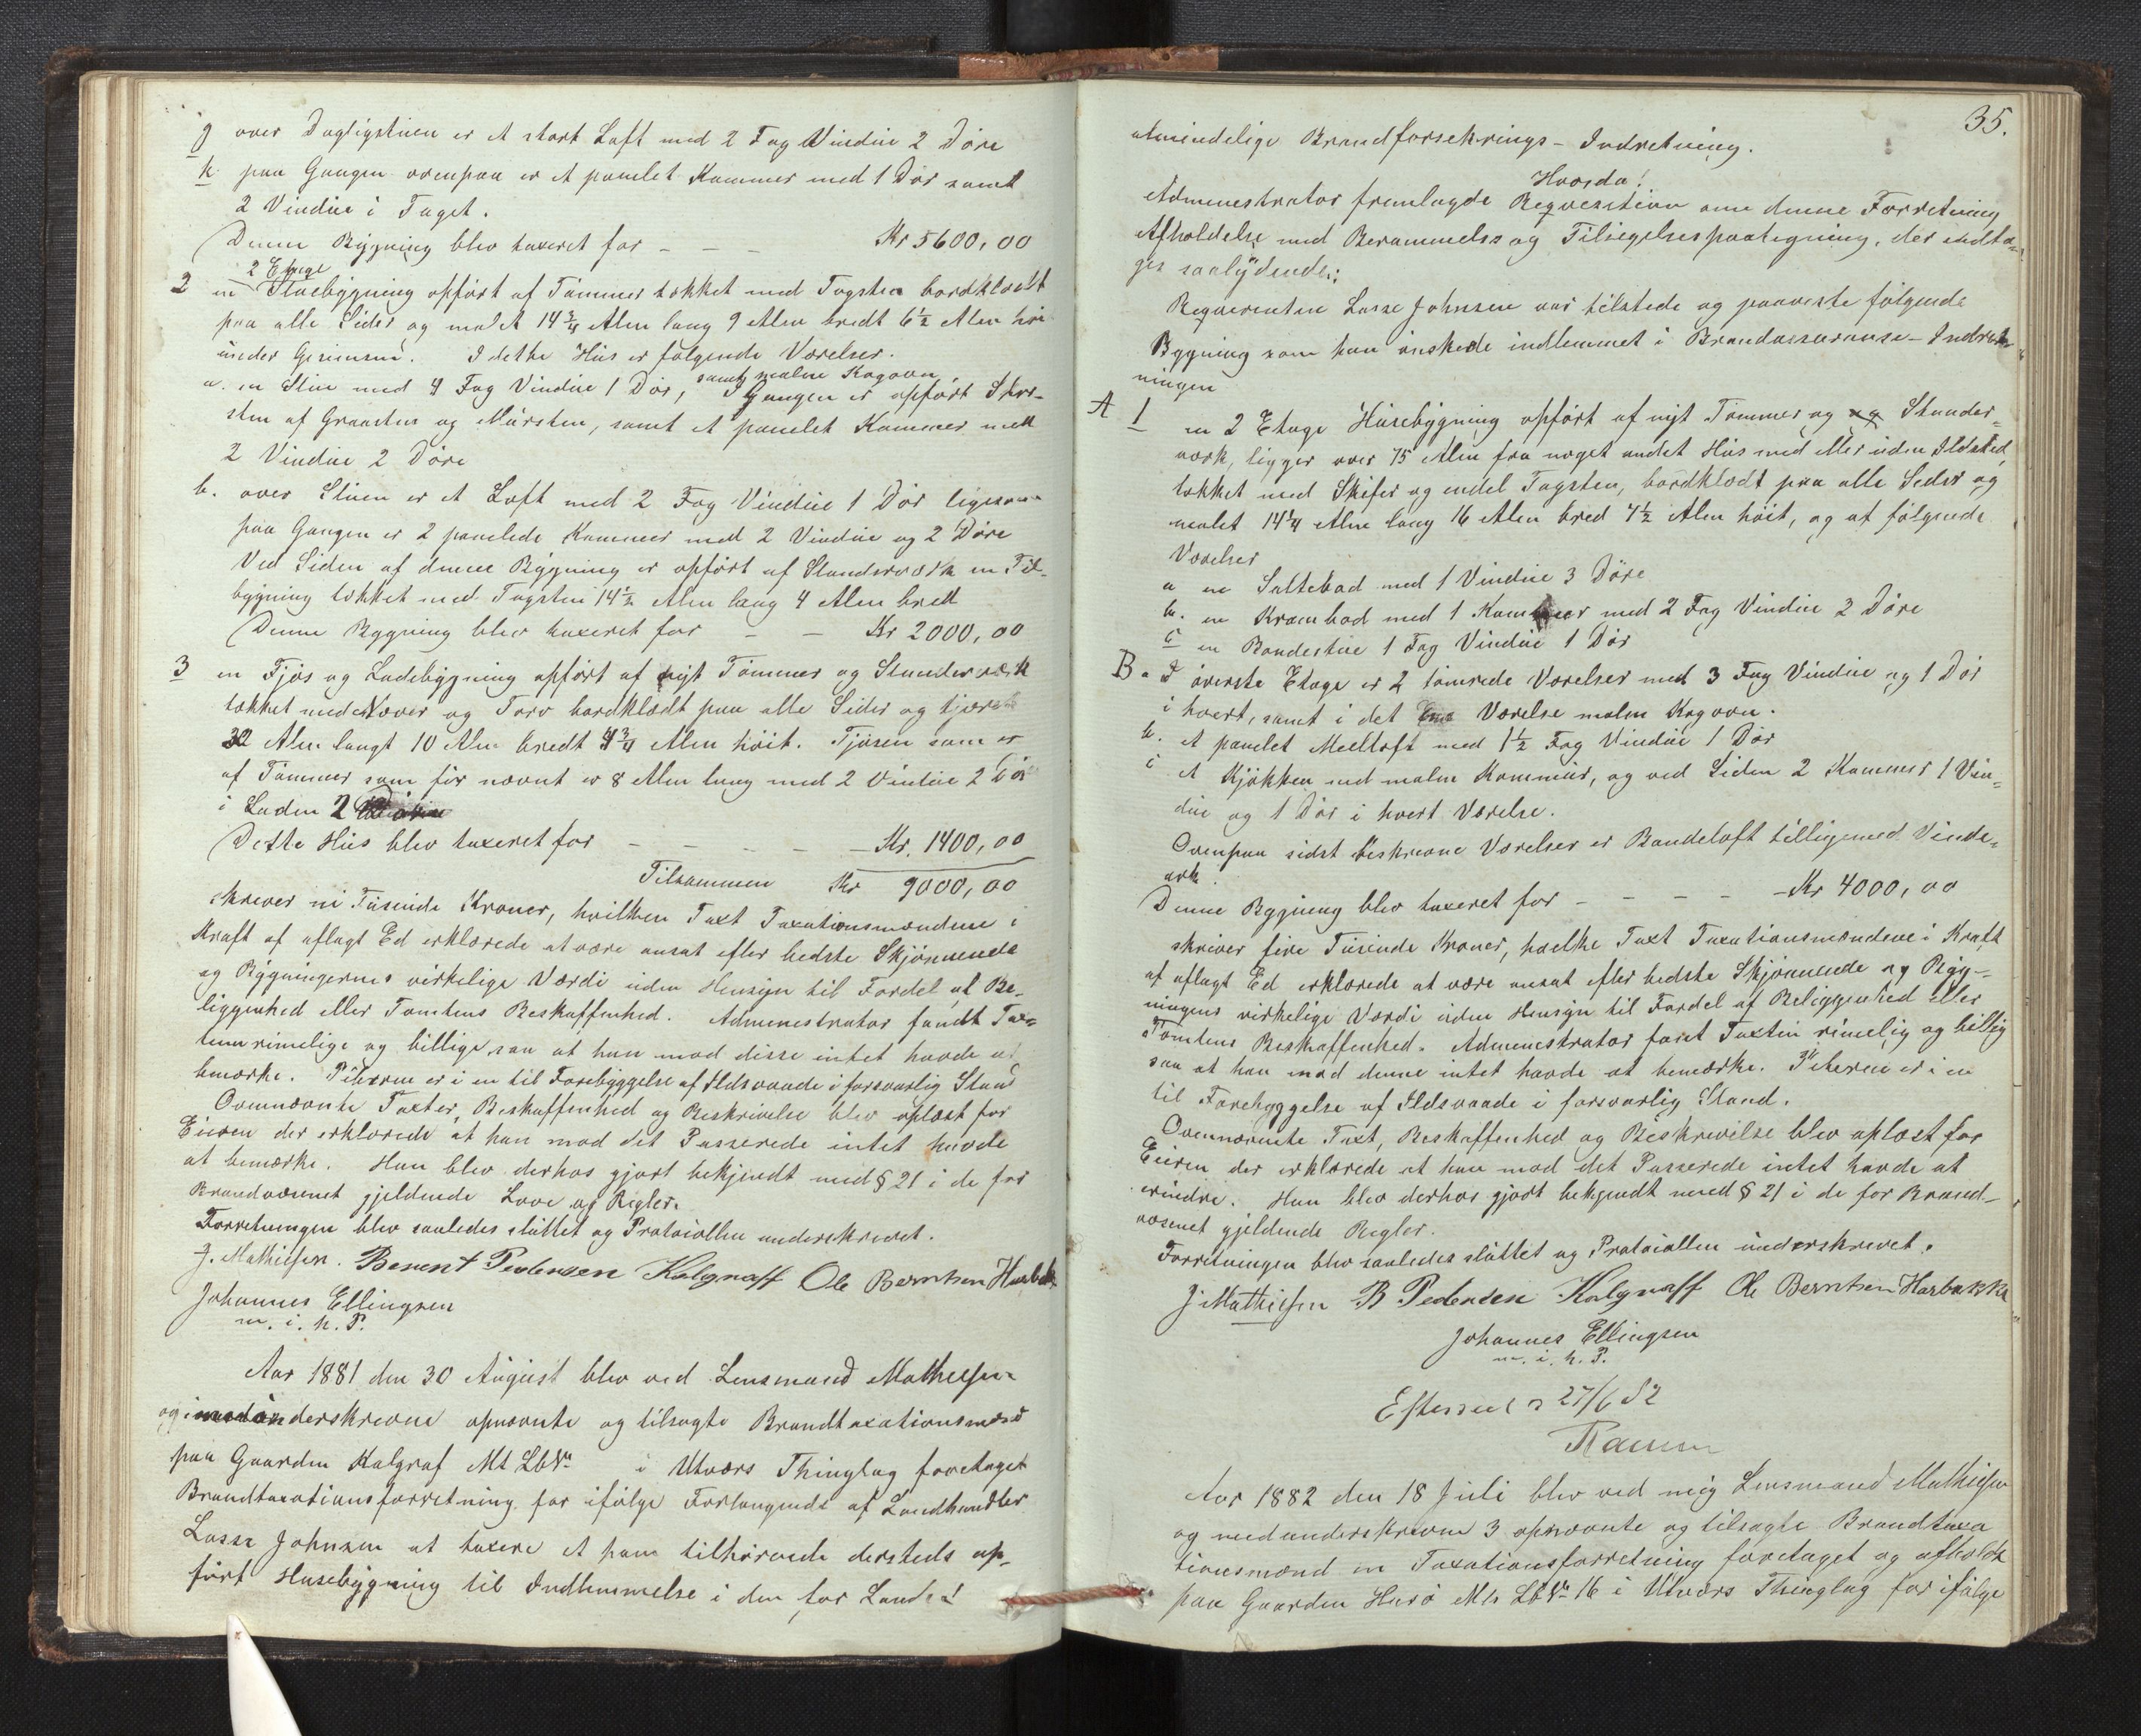 g over Dagligstuen er et stort Loft med 2 Fag Vindue 2 Döre
h paa Gangen ovenpaa er et panelet Kammer med 1 Dör samt
2 Vindue i Taget.
Denne Bygning blev taxeret for - - - Kr 5600,00
2 Etage
2 en Stuebygning opfört af Tömmer tækket med Tagsten bordklædt
paa alle Sider og malet 14 3/4 Alen lang 9 Alen bredt 6 1/2 Alen höi
under Gesimsen. I dette Hus er fölgende Værelser.
samt malm Kagovn,
a. en Stue med 4 Fag Vindue 1 Dör, I Gangen er opfört Skor-
sten af Graasten og Mürsten, samt et panelet Kammer med
2 Vindue 2 Döre
b. over Stuen er et Loft med 2 Fag Vindue 1 Dör ligesom
paa Gangen er 2 panelede Kammer med 2 Vindue og 2 Döre
Ved Siden af denne Bygning er opfört af Standerværk en Til-
bygning tækket med Tagsten 14 1/2 Alen lang 4 Alen bred
Denne Bygning blev taxeret for - - Kr 2000,00
3 en Fjös og Ladebygning opfört af nyt Tömmer og Standerværk
tækket med Næver og Torv bordklædt paa alle Sider og tjæret
32 Alen langt 10 Alen bredt 4 3/4 Alen höit. Fjösen som er
af Tömmer som för nævnt er 8 Alen lang med 2 Vindue 2 Dör
i Laden 2
Dette Hus blev taxeret for - - - - Kr. 1400,00
Tilsammen Kr 9000,00
skriver ni Tusinde Kroner, hvilken Taxt Taxationsmændene i
Kraft af aflagt Ed erklærede at være ansat efter bedste Skjönnende
og Bygningernes virkelige Værdi uden Hensyn til Fordel af Be-
liggenhed eller Tomtens Beskaffenhed. Admenestrator fandt Tax-
terne rimelige og billige, saa at han mod disse intet havde at
bemærke. Piberne er i en til Forebyggelse af Ildsvaade i forsvarlig Stand
Ovennævnte Taxter, Beskaffenhed og Beskrivelse blev oplæst for
Eieren der erklærede at han mod det Passerede intet havde
at bemærke. Han blev derhos gjort bekjendt med § 21 i de for
Brandvæsenet gjeldende Love og Regler.
Forretningen blev saaledes sluttet og Protocollen underskrevet.
J. Mathiesen. Berent Pedersen Kalgraff Ole Berntsen Harbak
Johannes Ellingsen
m. i. h. P.
Aar 1881 den 30 August blev ved Lensmand Mathiesen
og medunderskrevne opnævnte og tilsagte Brandtaxationsmænd
paa Gaarden Kalgraf Mt LbNr i Utværs Thinglag foretaget
Brandtaxationsforretning for ifölge Forlangende af Landhandler
Lasse Johnsen at taxere et ham tilhörende dersteds op-
fört Husebygning til Indlemmelse i den for Landet
35.
almindelige Brandforsekrings-Indretning.
Hvorda!
Admenestrator fremlagde Reqvesition om denne Forretning
Afholdelse med Berammelse og Tilsigelsespaategning, der indta-
ges saalydende:
Reqverenten Lasse Johnsen var tilstede og paaveste fölgende
Bygning som han önskede indlemmet i Brandassuranse-Indret-
ningen
A 1 en 2 Etage Husebygning opfört af nyt Tömmer og Stander-
værk, ligger over 75 Alen fra noget andet Hus med eller uden Ildsted,
tækket med Skifer og endel Tagsten, bordklædt paa alle Seder og
malet 14 1/4 Alen lang 16 Alen bred 4 1/2 Alen höit, og af fölgende
Værelser
a en Saltebod med 1 Vindue 3 Döre
b. en Krambod med 1 Kammer med 2 Fag Vindue 2 Döre
c en Bondestue 1 Fag Vindue 1 Dör
B a I överste Etage er 2 tömrede Værelser med 3 Fag Vindue og 1 Dör
i hvert, samt i det ene Værelse malm Kagovn.
b. et panelet Meelloft med 1 1/2 Fag Vindue 1 Dör
c et Kjökken med malm Kommür, og ved Siden 2 Kammer 1 Vin-
due og 1 Dör i hvert Værelse.
Ovenpaa sidst beskrevne Værelser er Bondeloft tilligemed Vinde-
ark.
Denne Bygning blev taxeret for - - - - Kr 4000,00
skriver fire Tusinde Kroner, hvilke Taxt Taxationsmændene i Kraft
af aflagt Ed erklærede at være ansat efter bedste Skjönnende og Byg-
ningens virkelige Værdi uden Hensyn til Fordel af Beliggenhed eller
Tomtens Beskaffenhed. Admenestrator fant Taxten rimelig og billig
saa at han mod denne intet havde at bemærke. Piberne er i en
til Forebyggelse af Ildsvaade i forsvarlig Stand.
Ovennævnte Taxt, Beskaffenhed og Beskrevelse blev oplæst for
Eieren der erklærede at han mod det Passerede intet havde at
erindre. Han blev derhos gjort bekjendt med § 21 i de for Brand-
væsenet gjeldende Regler.
Forretningen blev saaledes sluttet og Protocollen underskrevet.
J Mathiesen B Pedersen Kalgraff Ole Berntsen Harbakke
Johannes Ellingsen
m. i. h. P.
27/6 82
Aar 1882 den 18 Juli blev ved mig Lensmand Mathiesen
og medunderskrevne 3 opnævnte og tilsagte Brandtaxa
tionsmænd en Taxationsforretning foretaget og afholdt
paa Gaarden Husö Mts LbNr 16 i Utværs Thinglag for ifölge